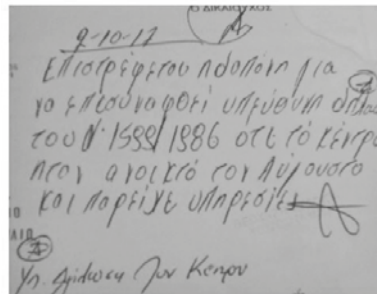 Ο ΔΙΚΑΙΟΥΧΟΣ
9-10-17
Επιστρέφεται η δαπάνη για
να επισυναφθεί υπεύθυνη δήλωση
του Ν. 1599/1986 οτι το κέντρο
ηταν ανοικτό τον Αύγουστο
και παρείχε υπηρεσίες
Υπ. Δήλωση Του Κέντρου